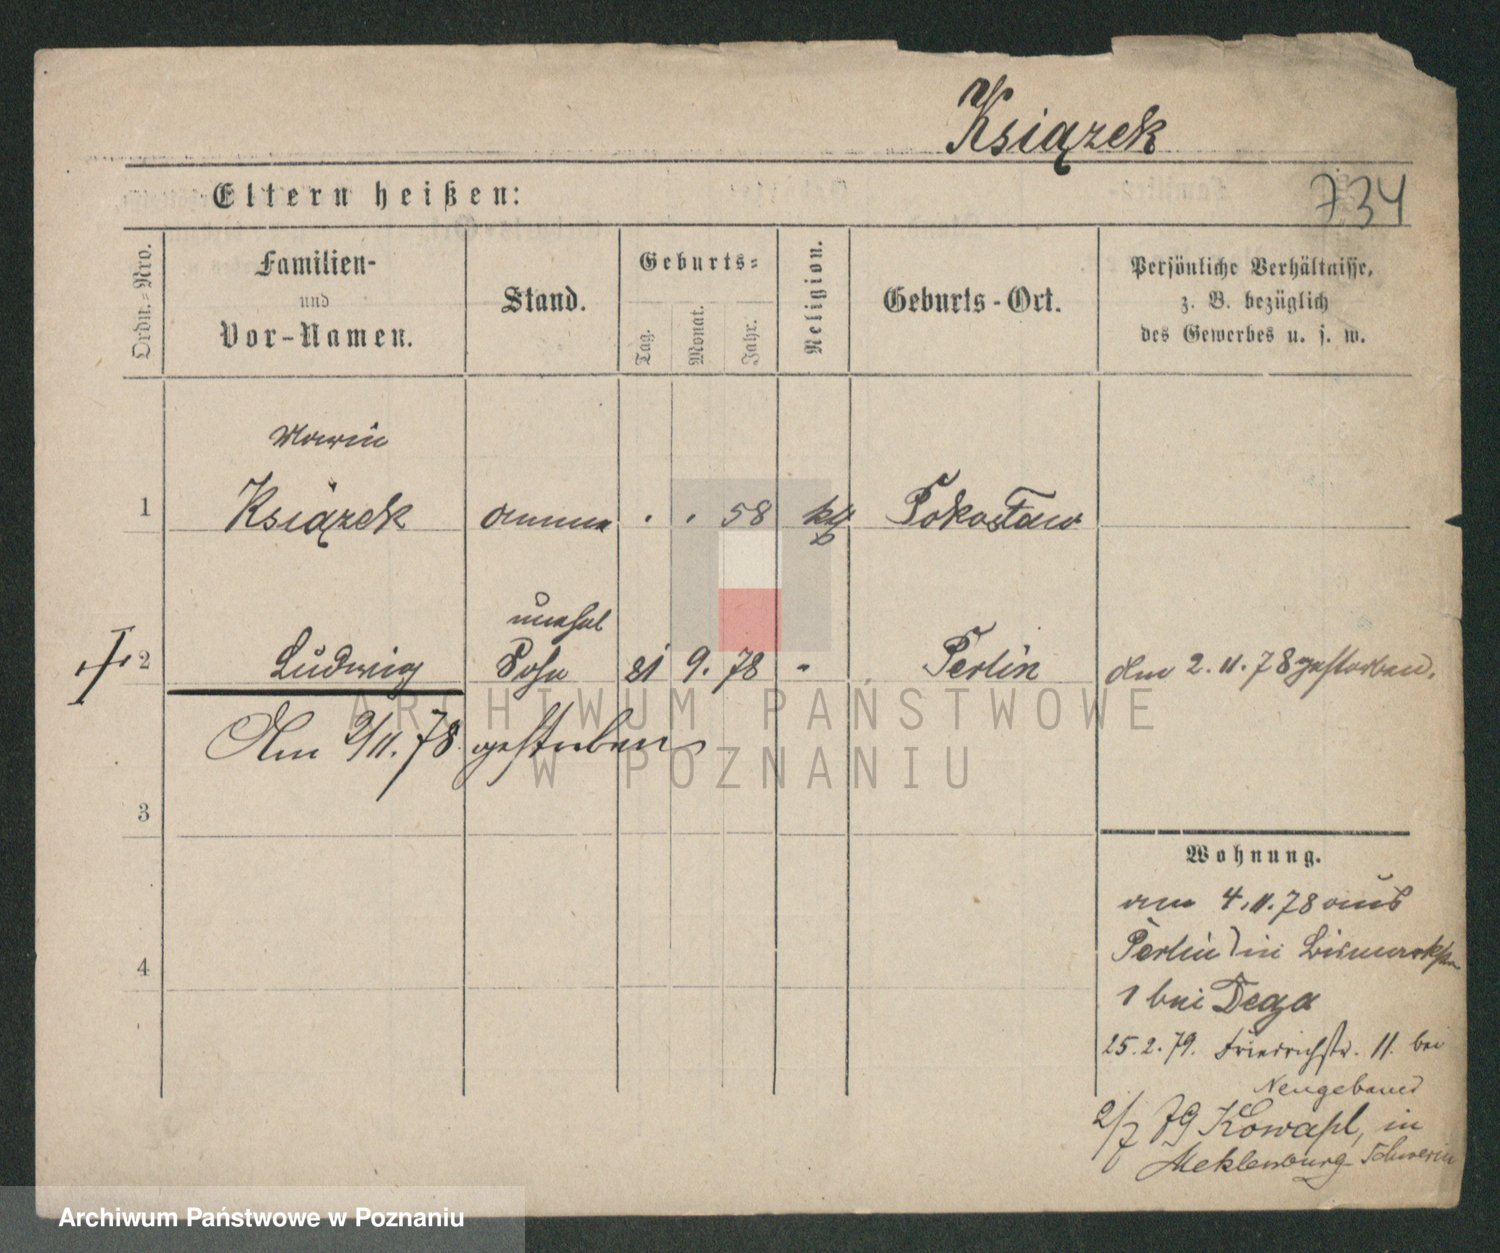 Książek
Eltern heißen:
734
Ordn.-Nro.
Familien-
und
Vor-Namen.
Stand.
Geburts-
Tag.
Monat.
Jahr.
Religion.
Geburts-Ort.
Persönliche Verhältnisse,
z. B. bezüglich
des Gewerbes u. s. w.
Marie
1 Książek Amme . . 58 kth
unehel
2 Ludwig Sohn 21 9. 78 " Berlin Am 2.11.78 gestorben.
Am 2/11.78 gestorben
3
Wohnung.
am 4.11.78 aus
Berlin in Bismarckstr
4
1 bei
25.2.79. Friedrichstr. 11. bei
Neugebauer
2/7 79 in
Meklenburg Schwerin
ARCHIWUM PAŃSTWOWE
W POZNANIU
Archiwum Państwowe w Poznaniu